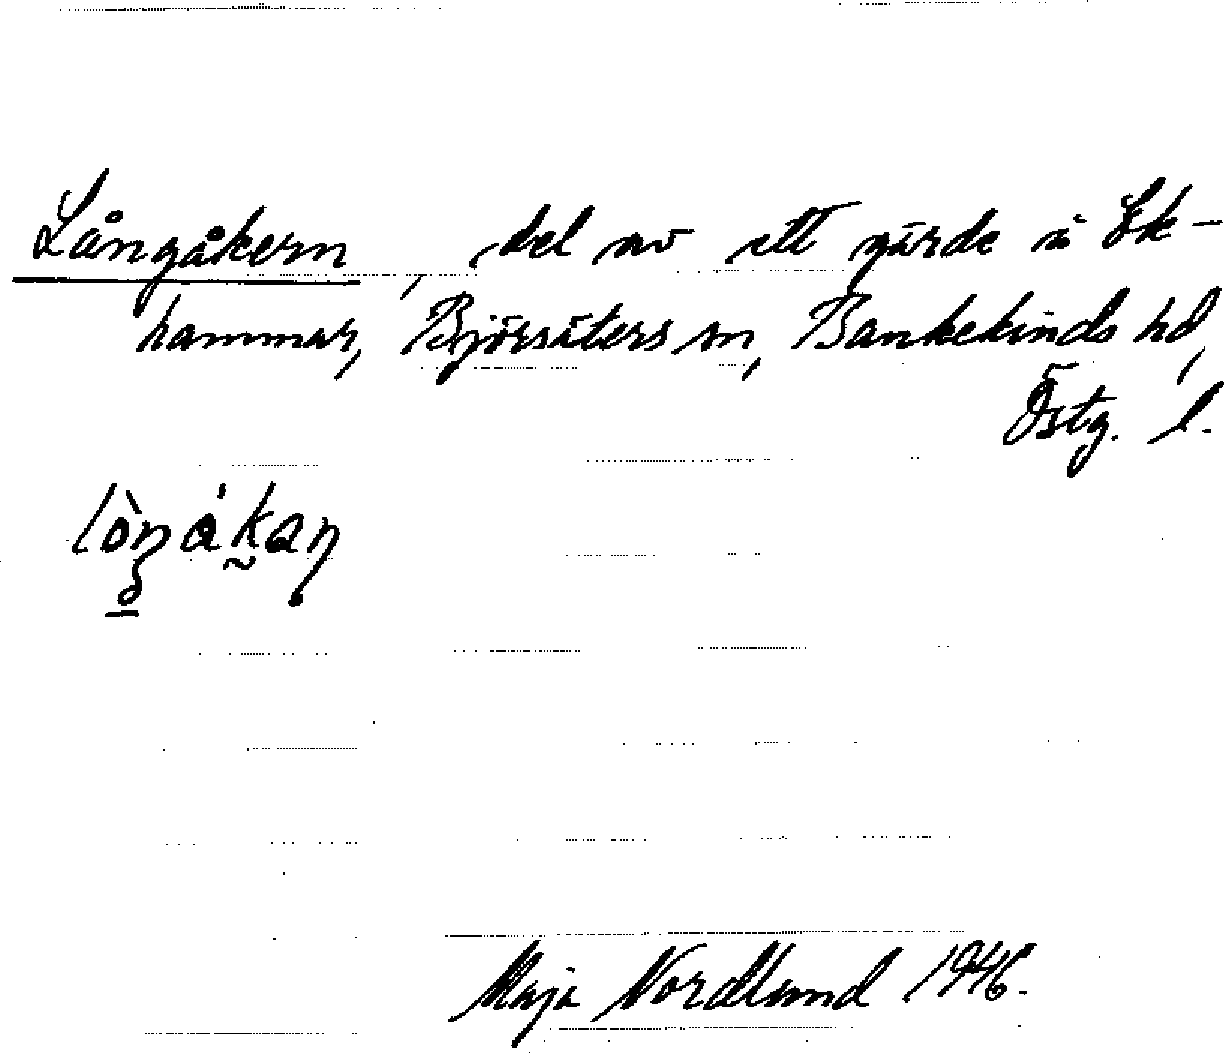 Långåkern, del av ett gärde å Ek-
hammar, Björsäters sn, Bankekinds hd,
Östg. l.
Maja Nordlund 1946.